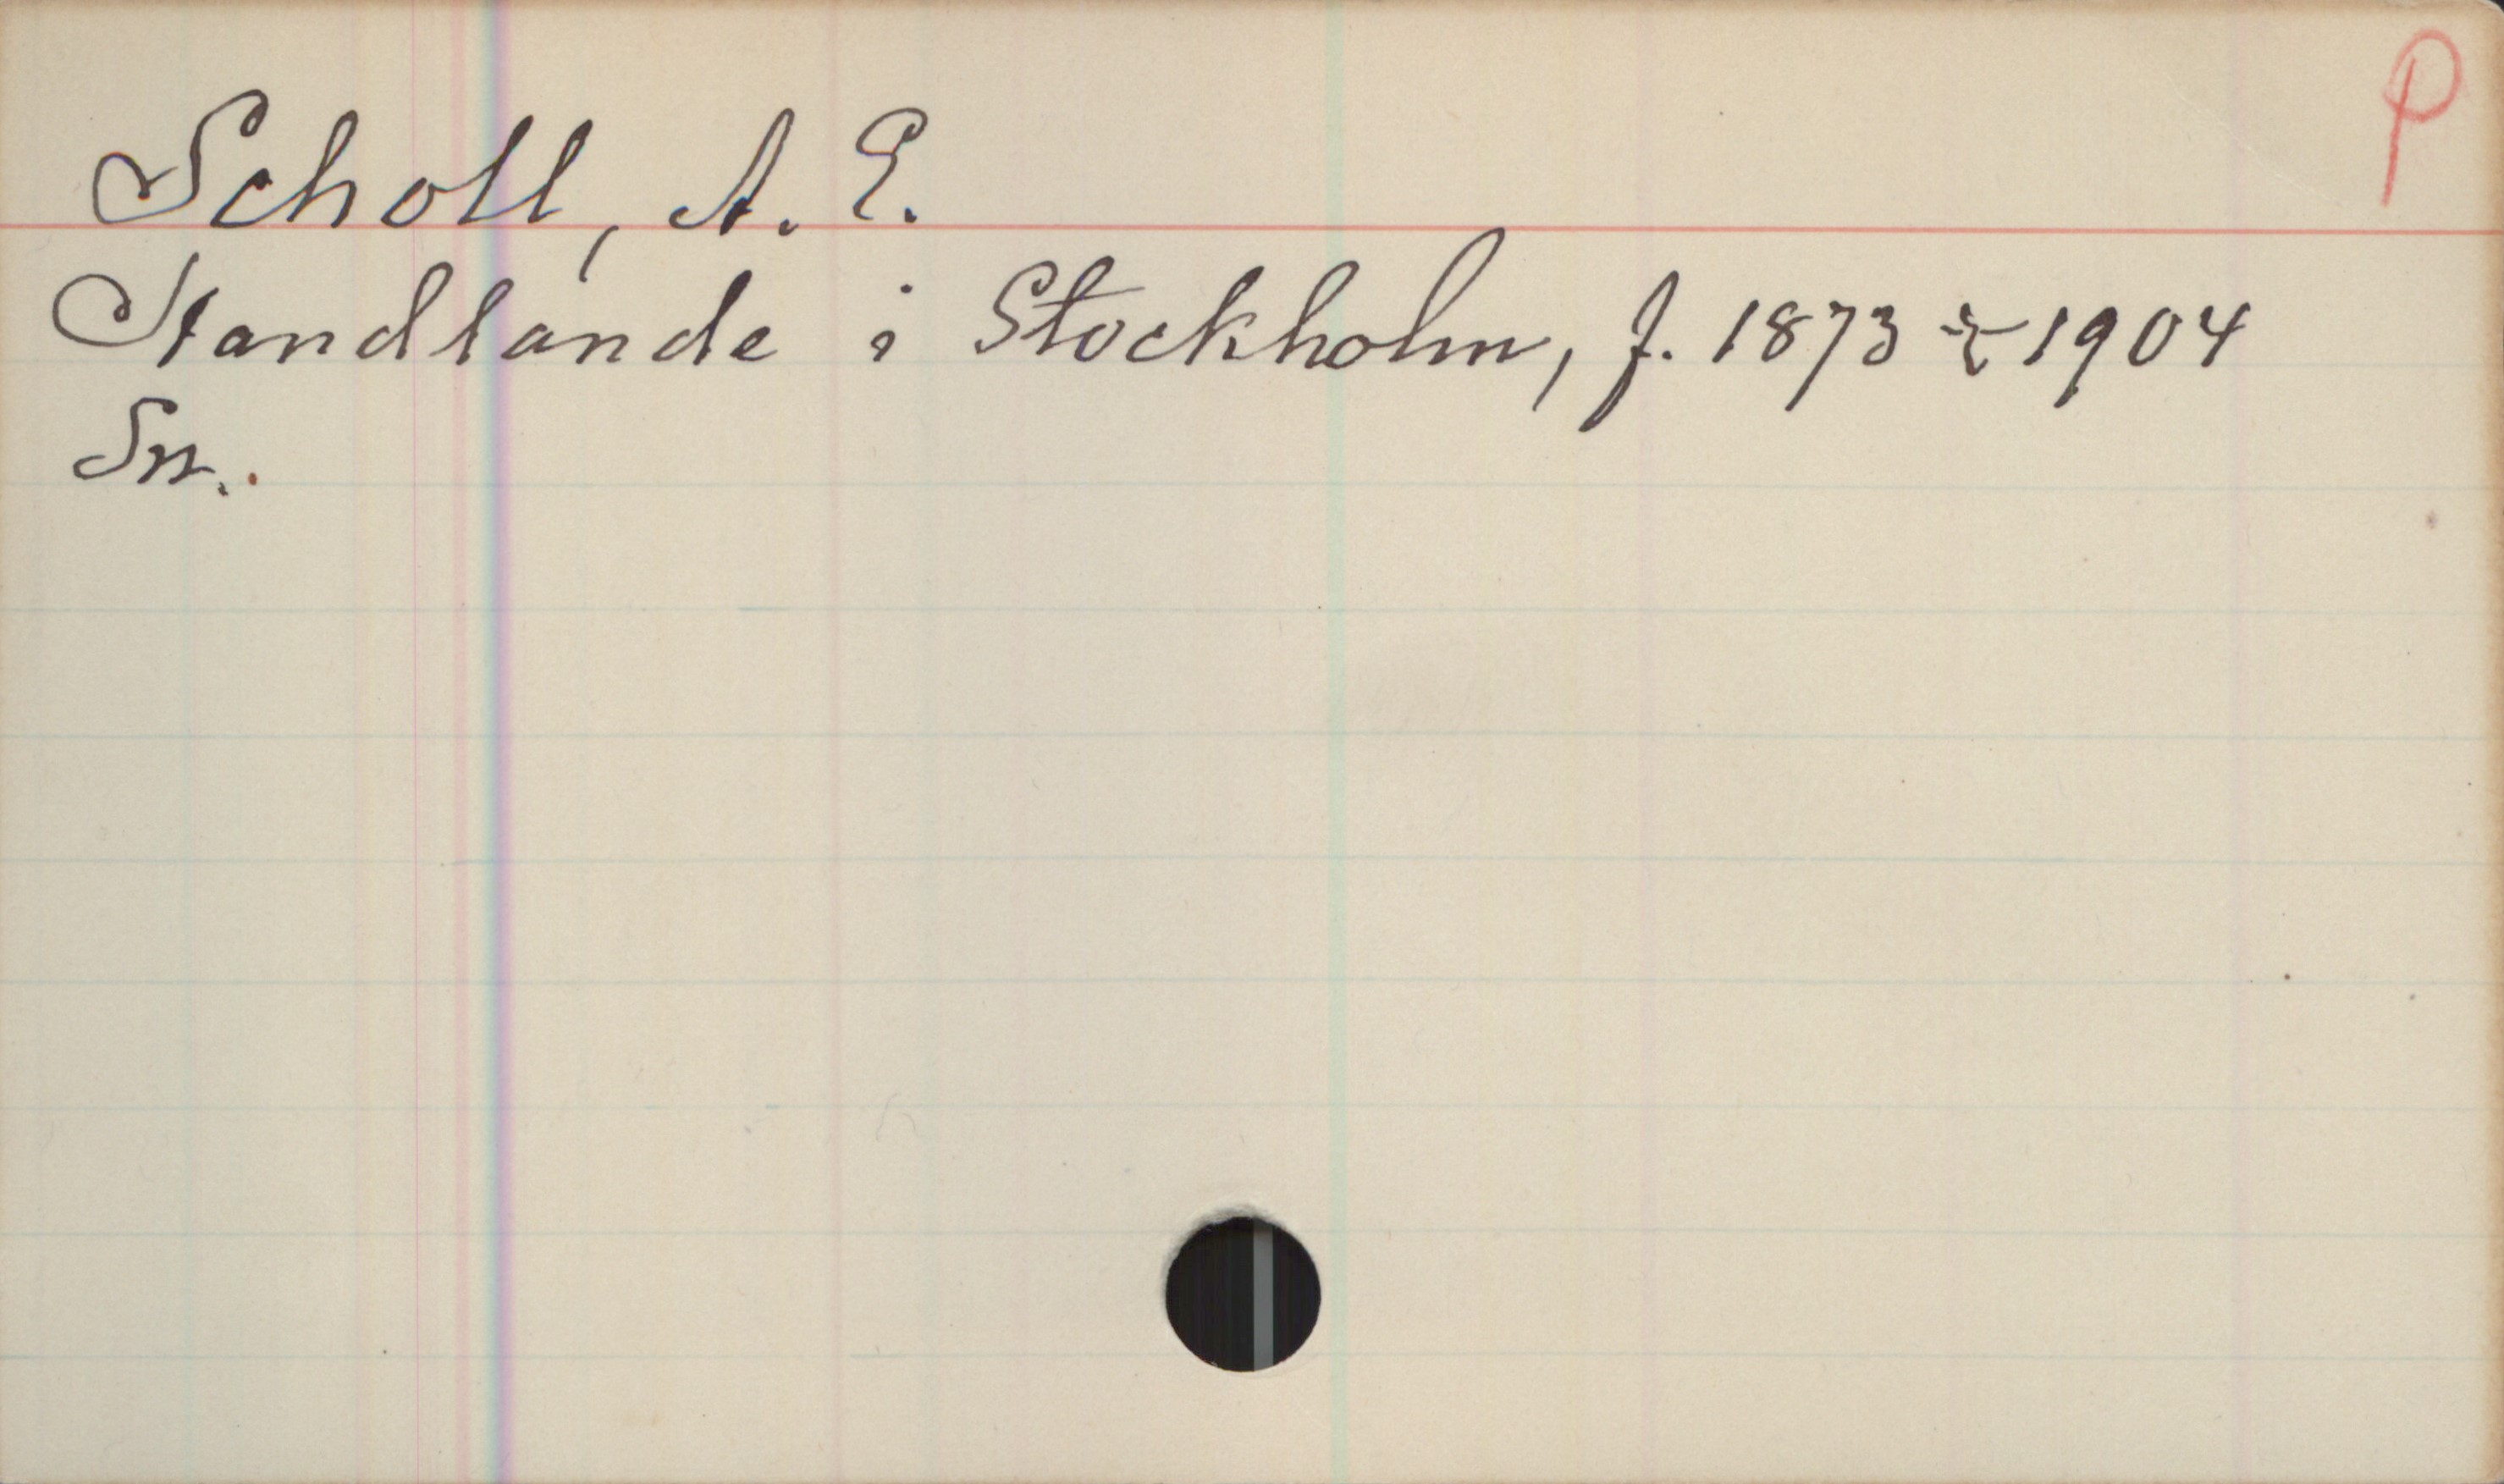 P
Scholl, A. E.
Handlande i Stockholm, f. 1873 ⳨ 1904
Sn.